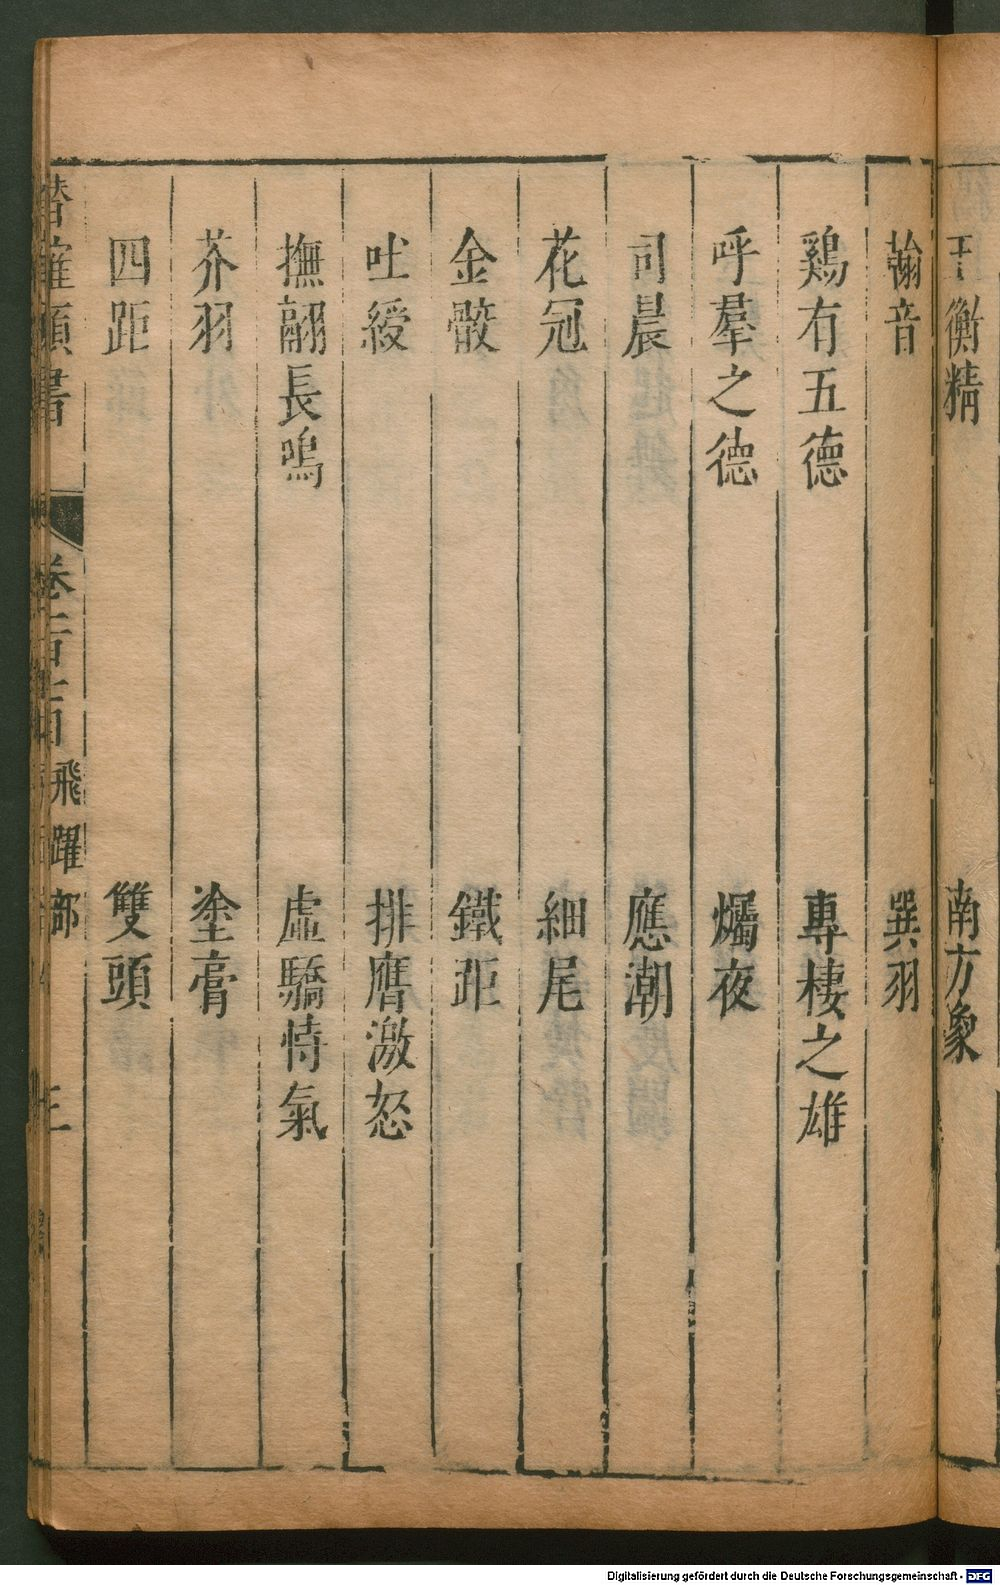 玉衡精 南方象
翰音 巽羽
鷄有五德 專棲之雄
呼羣之德 爥夜
司晨 應潮
花冠 細尾
金骹 鐵距
吐綬 排膺激怒
撫翮長鳴 虛驕恃氣
芥羽 塗膏
四距 雙頭
類書 飛躍部
Digitalisierung gefördert durch die Deutsche Forschungsgemeinschaft - DFG